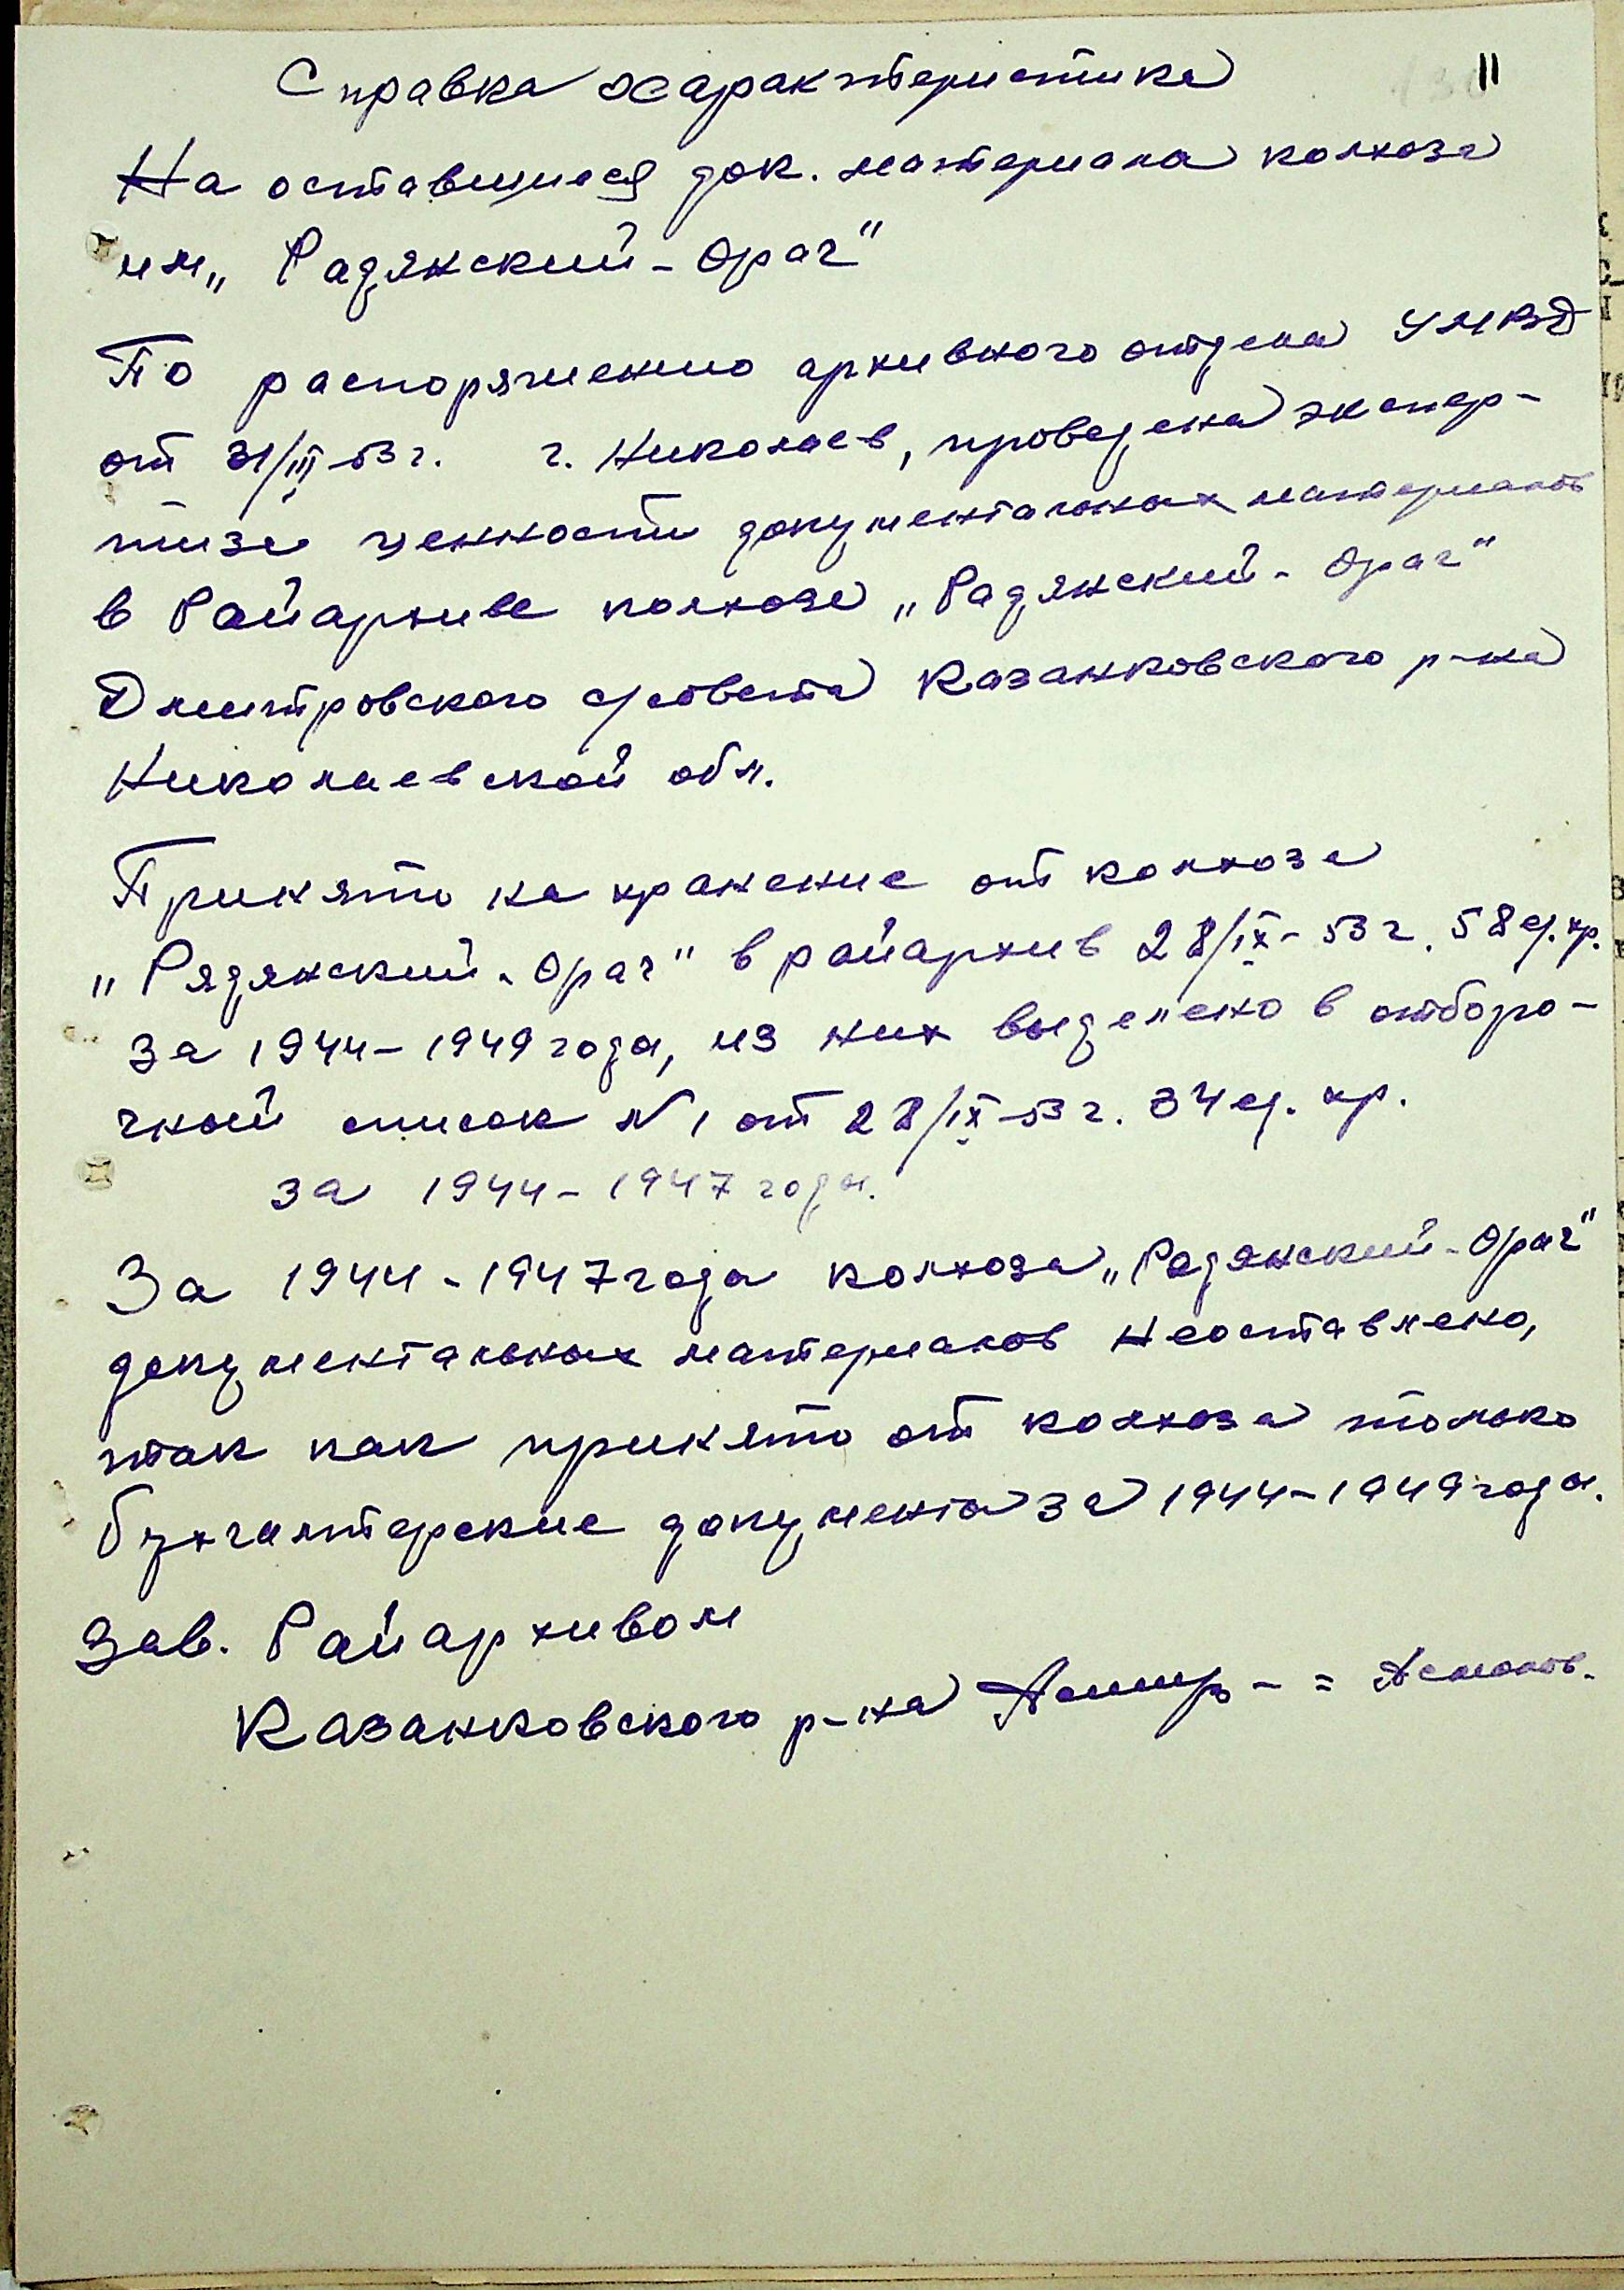 11
Справка характеристика
На оставшиеся док. материала колхоза
им „Радянский-Орач"
По распоряжению архивного отдела УМВД
от 31/III-53 г. г. Николаев, проведена экспер-
тиза ценности документальных материалов
в Райархиве колхоза „Радянский-Орач"
Дмитровского с/совета Казанковского р-на
Николаевской обл.
Принято на хранение от колхоза
„Рядянский-Орач" в райархив 28/IX-53 г. 58 ед. хр.
за 1944-1949 года, из них выделено в отборо-
чный список N 1 от 28/IX-53 г. 34 ед. хр.
за 1944-1947 годы.
За 1944-1947 года колхоза „Радянский-Орач"
документальных материалов неоставлено,
так как принято от колхоза только
бухгалтерские документы за 1944-1949 годы.
Зав. Райархивом
Казанковского р-на